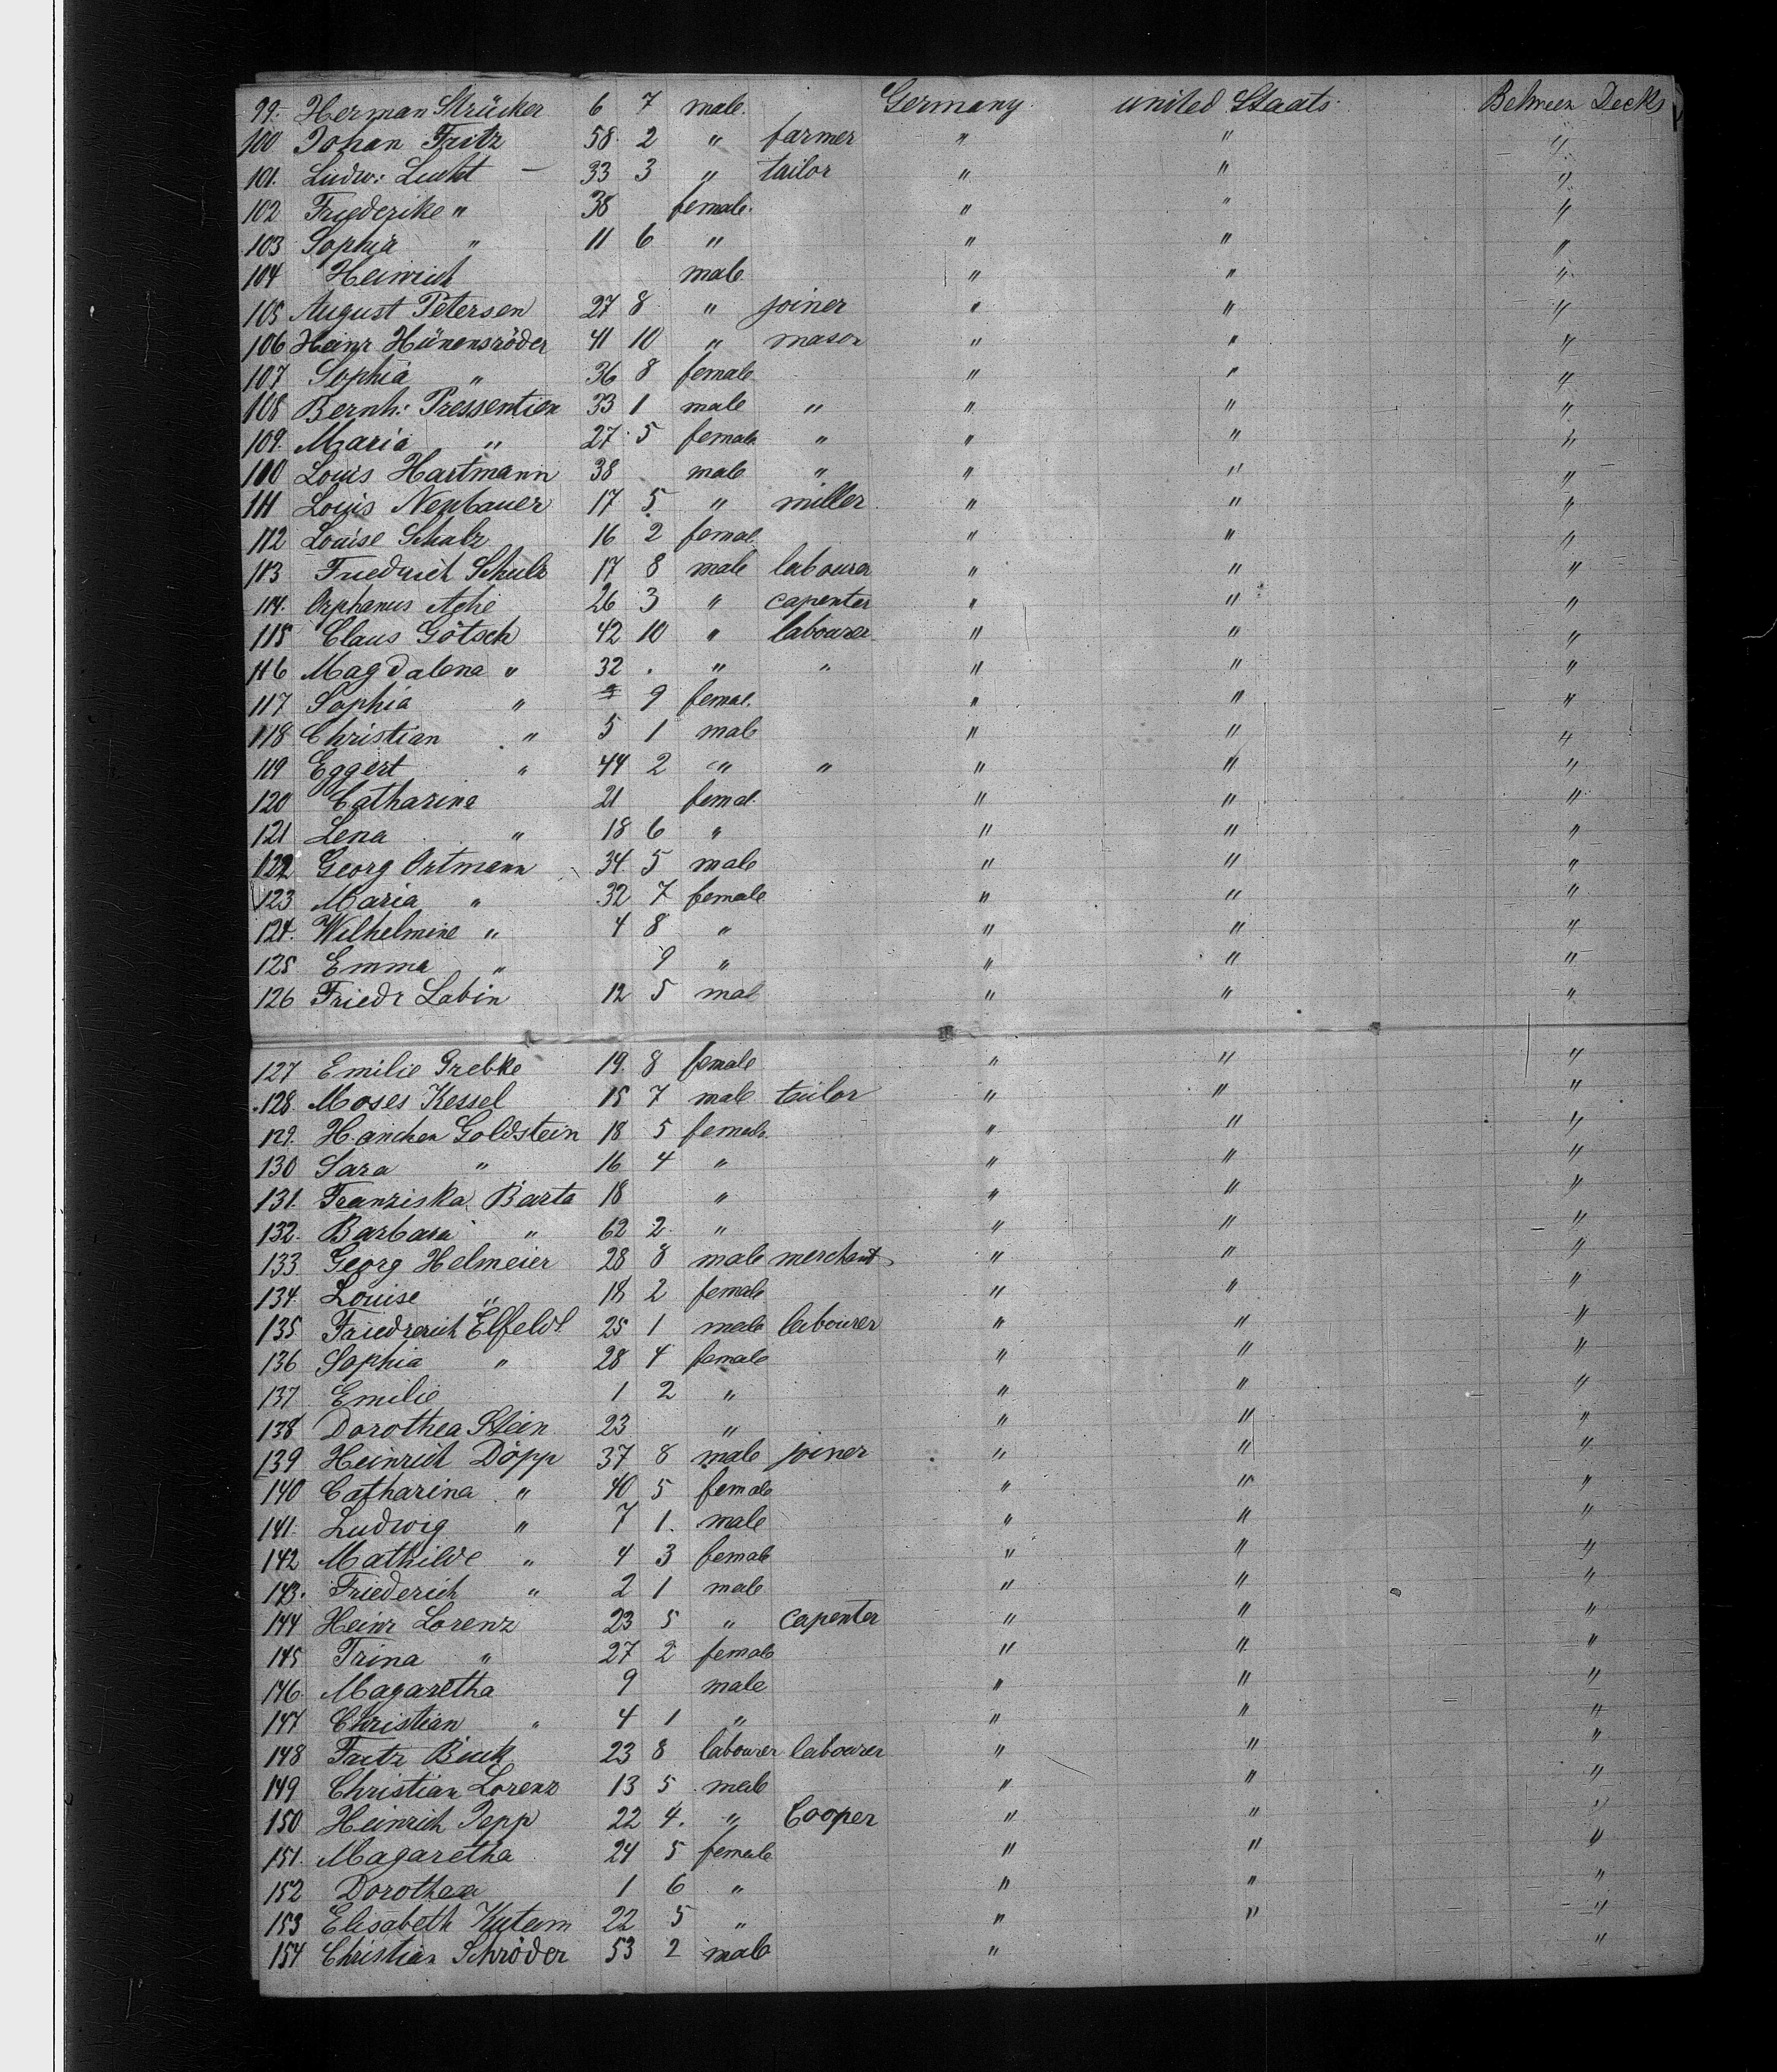 99. Herman Strücker 6 7 male. Germany. united Staats. Between Decks
100 Johan Fritz 58. 2 " farmer " " "
101. Ludw: Lucht — 33 3 " tailor " " "
102 Friederike " 38 female. " " "
103 Sophia " 11 6 " " " "
104 Heinrich male " " "
105 August Petersen 27 8 " joiner " " "
106 Heinr Hünensröder 41 10 " mason " " "
107 Sophia " 36 8 female " " "
108 Bernh: Pressentien 33 1 male " " " "
109. Maria " 27 5 female " " " "
100 Louis Hartmann 38 male " " " "
111 Louis Neubauer 17 5 " miller " " "
112 Louise Schulz 16 2 femal. " " "
113 Friedrich Schulz 17 8 male labourer " " "
114. Orphanus 26 3 " capenter " " "
115 Claus Götsch 42 10 " labourer " " "
116 Magdalena " 32 . " " " " "
117 Sophia " 9 femal. " " "
118 Christian " 5 1 male " " "
119 Eggert " 44 2 " " " " "
120 Catharina 21 femal. " " "
121 Lena " 18 6 " " " "
122 Georg Ortmann 34. 5 male " " "
123 Maria " 32 7 female " " "
124. Wilhelmine " 4 8 " " " "
125 Emma " 9 " " " "
126 Friedr Labin 12 5 mal " " "
127 Emilie Grebke 19. 8 female " " "
128 Moses Kessel 15 7 male tailor " " "
129. Hanchen Goldstein 18 5 female " " "
130 Sara " 16 4 " " " "
131. Franziska Barta 18 " " " "
132. Barbara " 62 2 " " " "
133 Georg Helmeier 28 8 male merchant " " "
134. Louise " 18 2 female " " "
135 Friedrerich Elfeldt 25 1 male labourer " " "
136 Sophia " 28 4 female " " "
137 Emilie 1 2 " " " "
138 Dorothea Stein 23 " " " "
139 Heinrich Döpp 37 8 male joiner " " "
140 Catharina " 40 5 female " " "
141. Ludwig " 7 1. male " " "
142 Mathilde " 4 3 female " " "
143. Friederich " 2 1 male " " "
144 Heinr Lorenz 23 5 " capenter " " "
145 Trina " 27 2 female " " "
146. Magaretha 9 male " " "
147 Christian " 4 1 " " " "
148 Fritz 23 8 labourer labourer " " "
149 Christian Lorenz 13 5 male " " "
150 Heinrich 22 4. " Cooper " " "
151. Magaretha 24 5 female " " "
152 Dorothea 1 6 " " " "
153 Elisabeth 22 5 " " " "
154 Christian Schröder 53 2 male " "